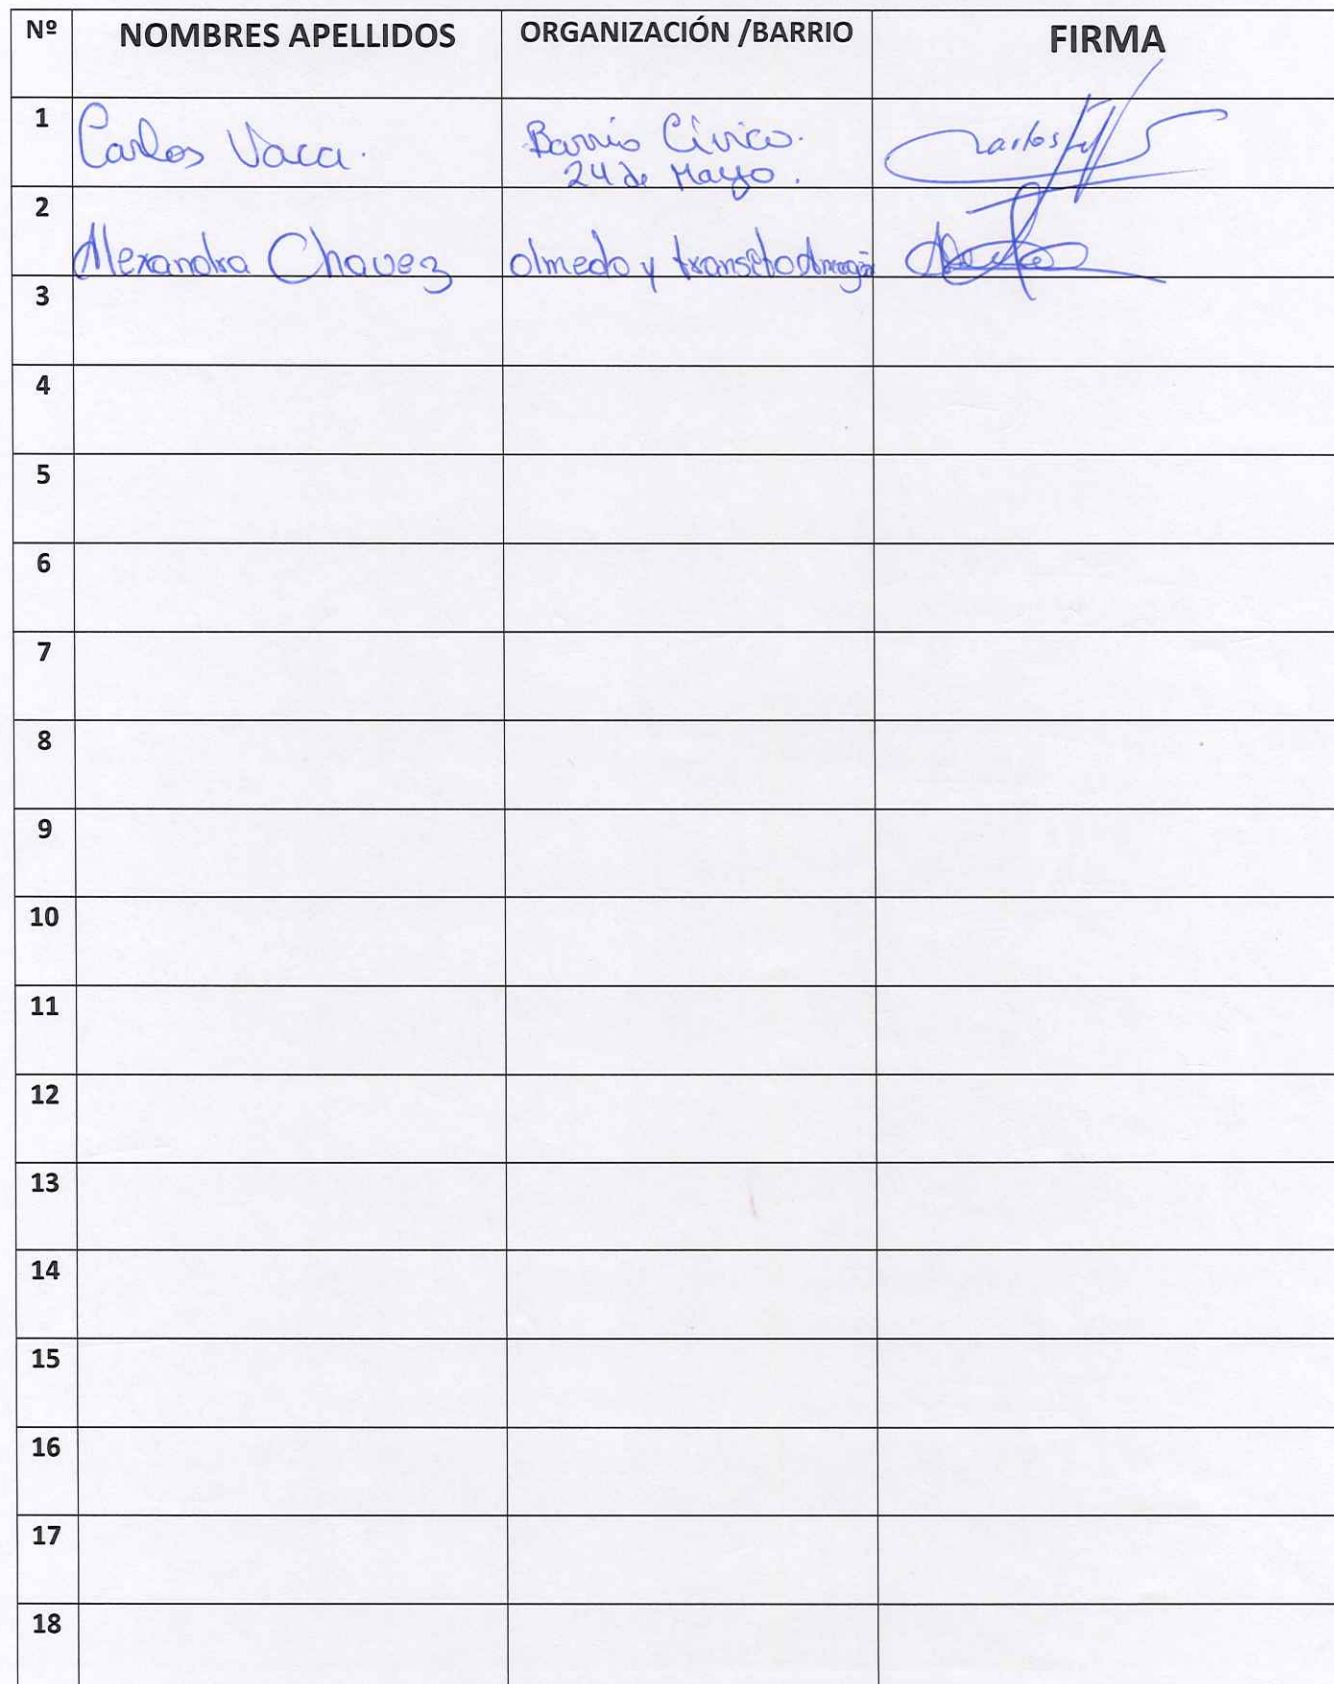 Nº NOMBRES APELLIDOS ORGANIZACIÓN /BARRIO FIRMA
1 Carlos Vaca. Barrio Cívico.
24 de Mayo.
2 Alexandra Chavez olmedo y transito
3
4
5
6
7
8
9
10
11
12
13
14
15
16
17
18